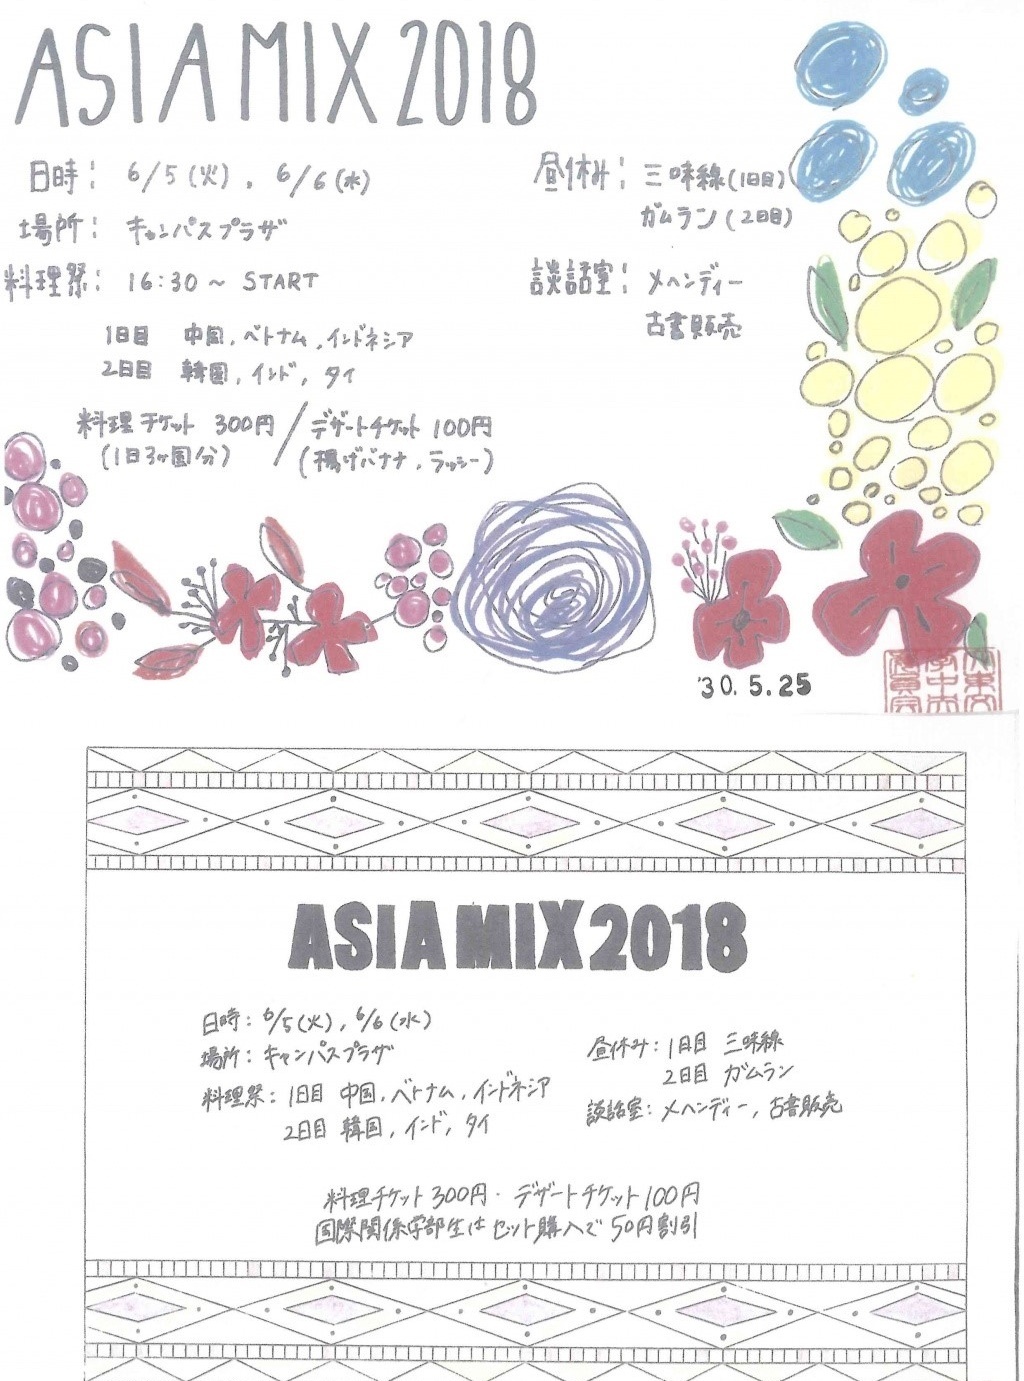 ASIA MIX 2018
日時: 6/5(火), 6/6(水)
場所: キャンパスプラザ
料理祭: 16:30～ START
1日目 中国, ベトナム, インドネシア
2日目 韓国, インド, タイ
料理チケット 300円 / デザートチケット 100円
(1日3ヶ国分) (揚げバナナ, ラッシー)
昼休み: 三味線(1日目)
ガムラン(2日目)
談話室: メヘンディー
古書販売
'30. 5. 25
ASIA MIX 2018
日時: 6/5(火), 6/6(水)
場所: キャンパスプラザ
料理祭: 1日目 中国, ベトナム, インドネシア
2日目 韓国, インド, タイ
昼休み: 1日目 三味線
2日目 ガムラン
談話室: メヘンディー, 古書販売
料理チケット 300円・デザートチケット 100円
国際関係学部生はセット購入で50円割引